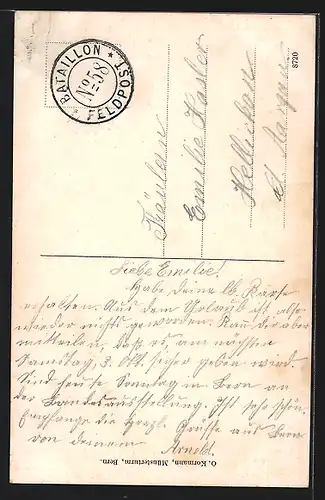 BATAILLON
No 58
* FELDPOST *
8720
Fräulein
Emilie Hasler
Hellikon
Kt. Aargau
Liebe Emilie!
Habe deine lb. Karte
erhalten. Aus dem Urlaub ist also
wieder nichts geworden. Kann dir aber
mitteilen, daß es am nächsten
Samstag, 3. Okt. sicher geben wird.
Sind heute Sonntag in Bern an
der Landesausstellung. Ist sehr schön.
Empfange die herzl. Grüsse aus Bern
von deinem
Arnold.
O. Kormann, Münsterturm, Bern.